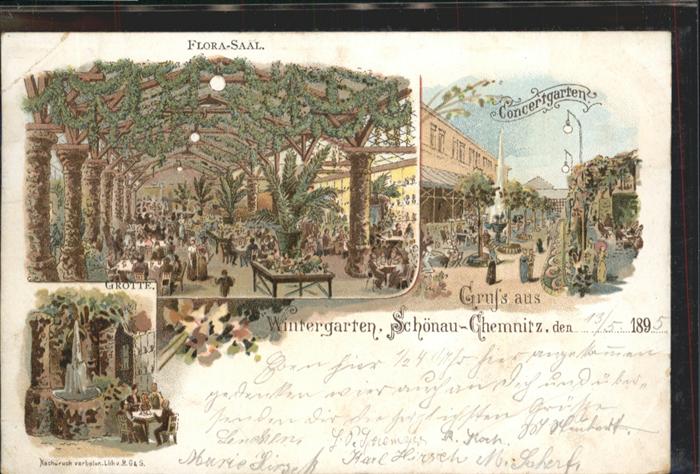 FLORA-SAAL.
Concertgarten
GROTTE.
Gruſs aus
Wintergarten. Schönau-Chemnitz, den 13/5 1895
Eben hier 1/2 4 hier angekommen
gedenken wir auch an Dich und über-
senden Dir die herzlichsten Grüße
R. Koch.
Marie Hirsch Karl Hirsch M. Scherf
Nachdruck verboten. Lith. v. R. G & S.